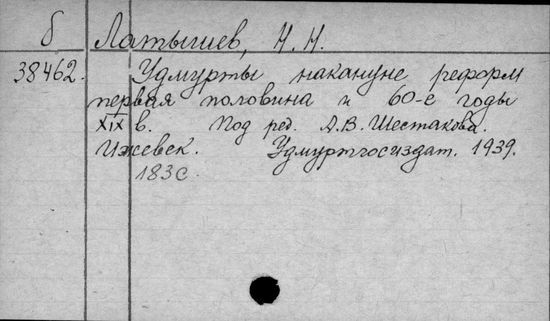 б Латышев, Н. Н.
38462. Удмурты накануне реформ
первая половина и 60-е годы
XIX в. Под ред. А.В. Шестакова.
Ижевск. Удмуртгосиздат. 1939.
183 с.